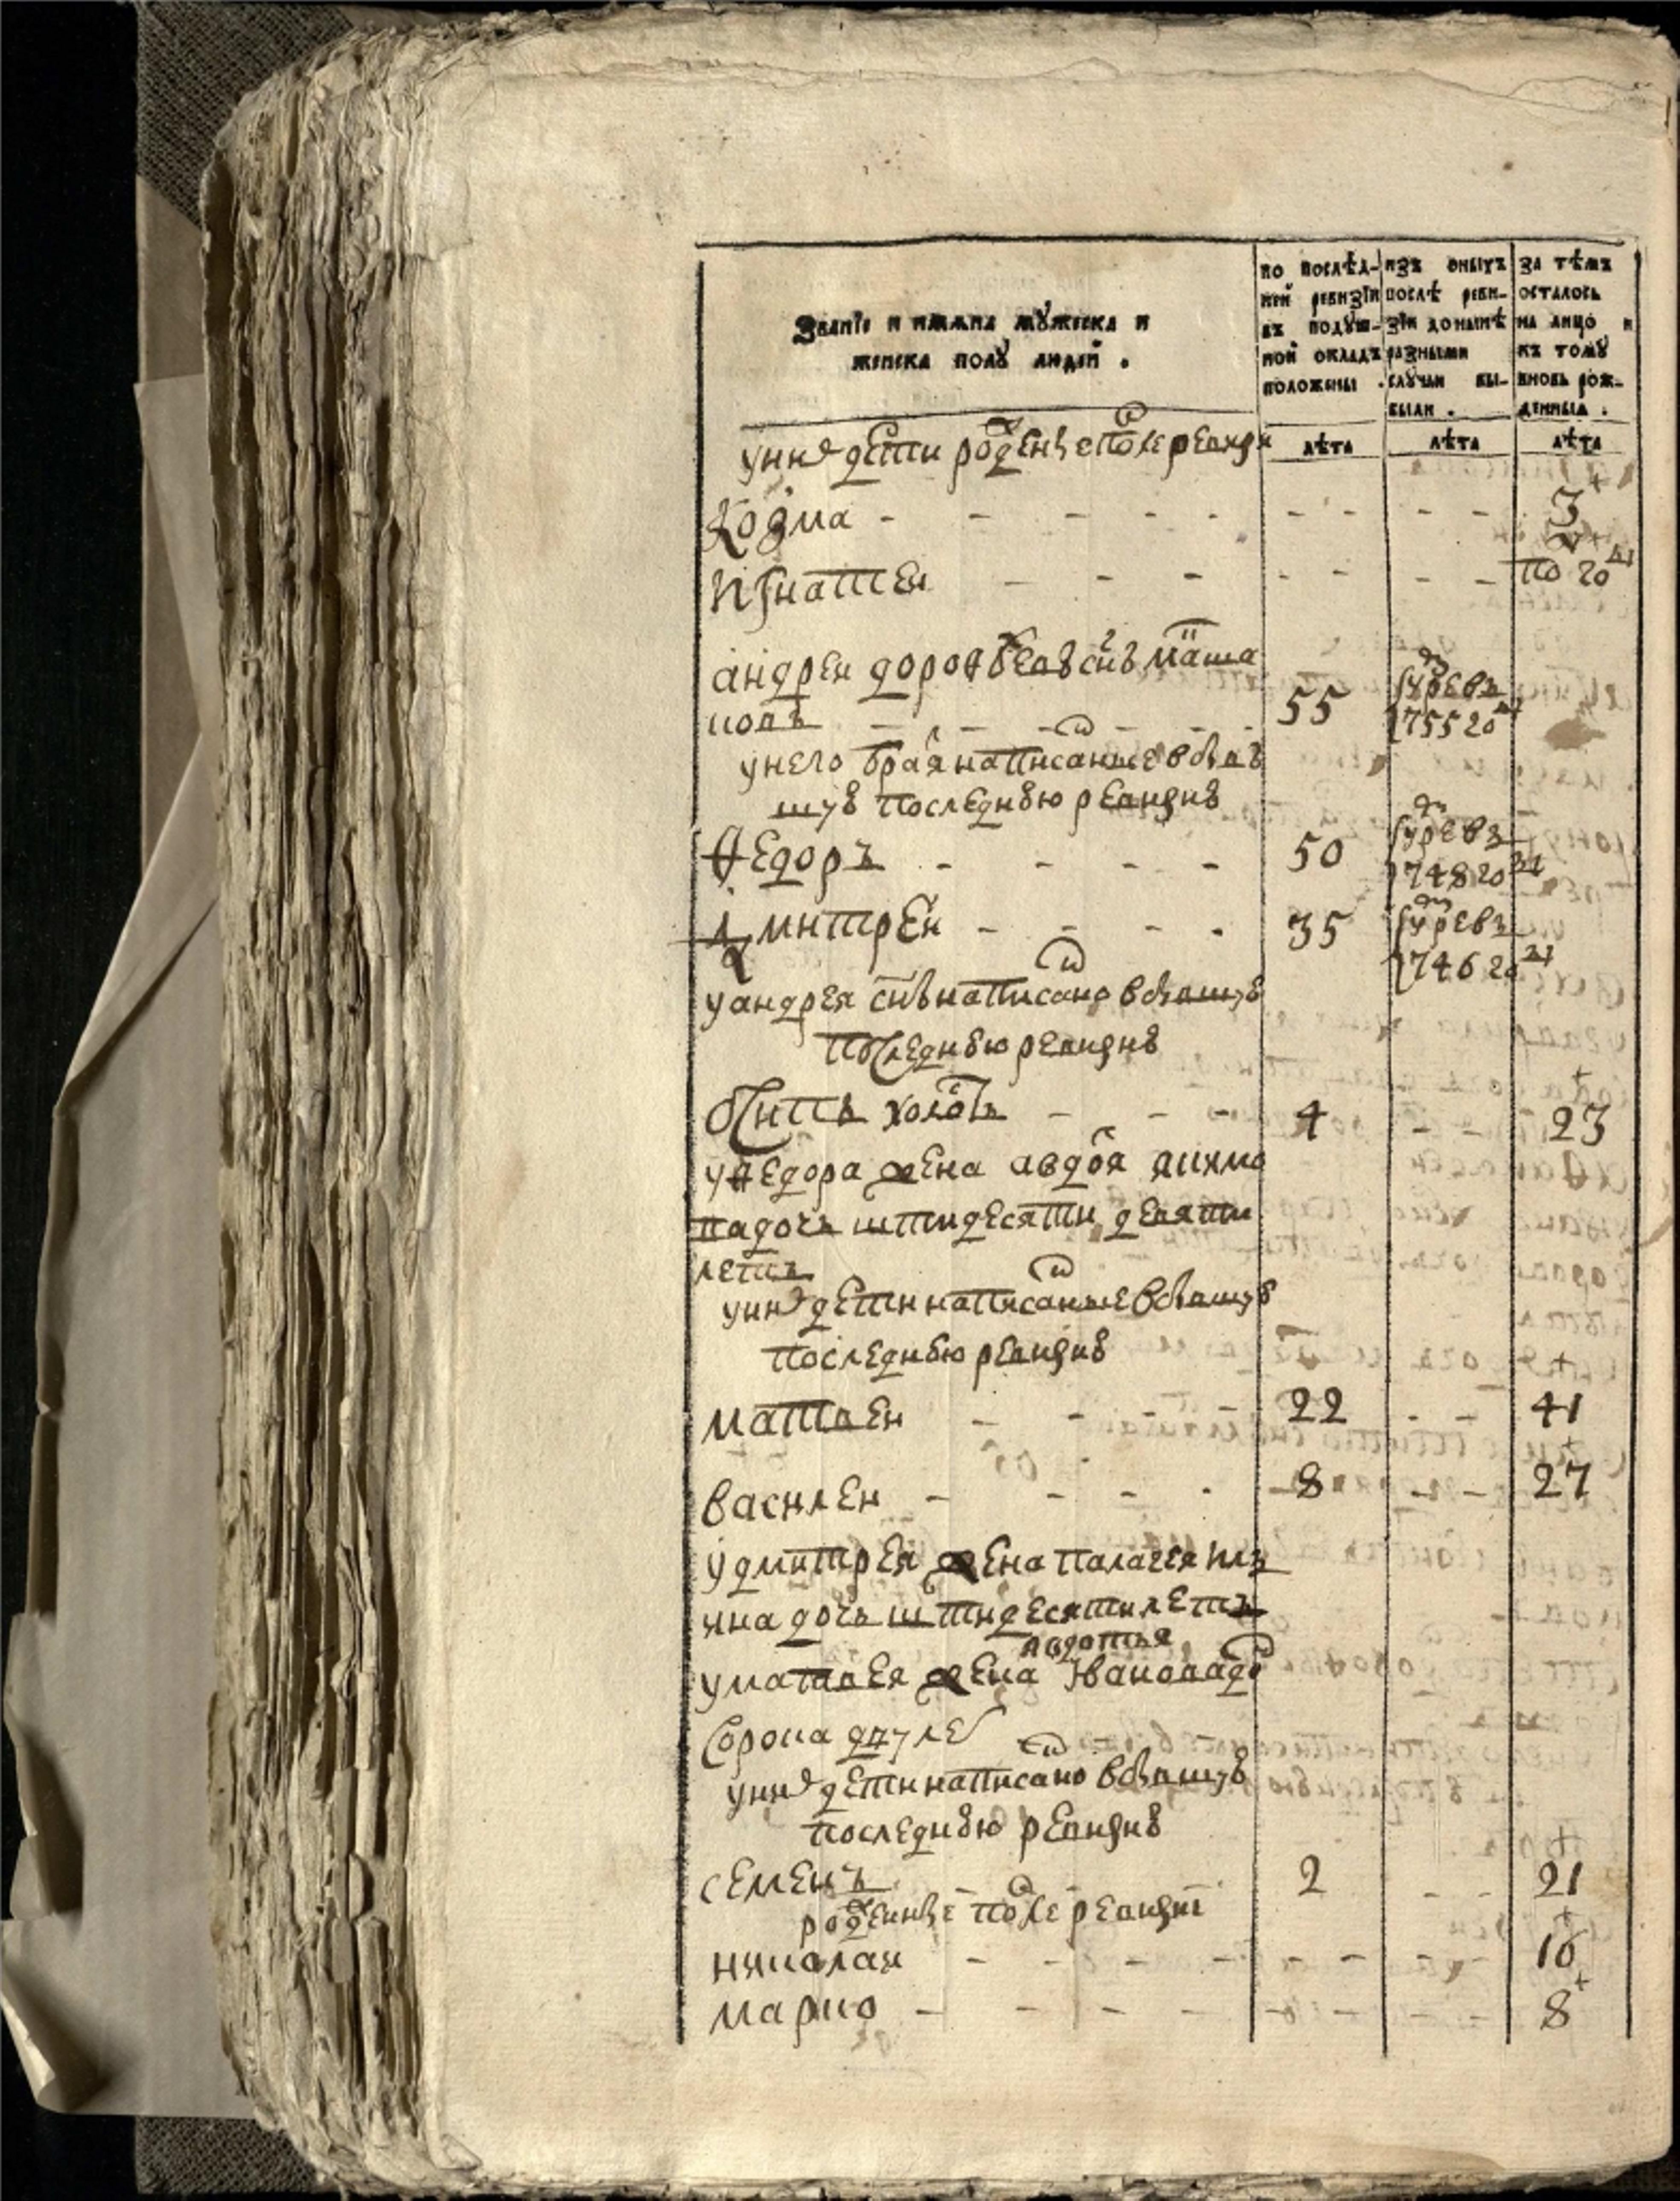 Званїе и имѧна мꙋжеска и
женска полꙋ людей .
по послѣд-
ней ревизїи
въ подꙋш-
ной окладъ
положены .
изъ оныхъ
послѣ реви-
зїи донынѣ
разными
случаи вы-
были .
за тѣмъ
осталось
на лицо и
къ томꙋ
вновь рож-
денныѧ .
лѣта лѣта лѣта
у них дети рожденые после ревизи
Козма - - - - - - - - - 3
Игнатеи - - - - - - - по году
андреи дорофеевъ снъ
55 умре въ 1755 году
у него братья написанные в бывшую
последнюю ревизию
Федоръ - - - - 50 умре въ 1748 году
Дмитреи - - - - 35 умре въ 1746 году
у андрея снъ написано в бывшую
последнюю ревизию
холостъ - - - 4 - - 23
у федора жена авдотя якимо
ва дочь шти десяти девяти
летъ
у них дети написанные в бывшую
последнюю ревизию
матвеи - - - - 22 - - 41
василеи - - - - 8 - - 27
у дмитрея жена палагея
дочь шти десяти летъ
у матвея жена авдотья иванова дочь
сорока дву лет
у них дети написано в бывшую
последнюю ревизию
семенъ - - - 2 - - 21
рожденные после ревизии
николаи - - - - - - - - 10
марко - - - - - - - - 8